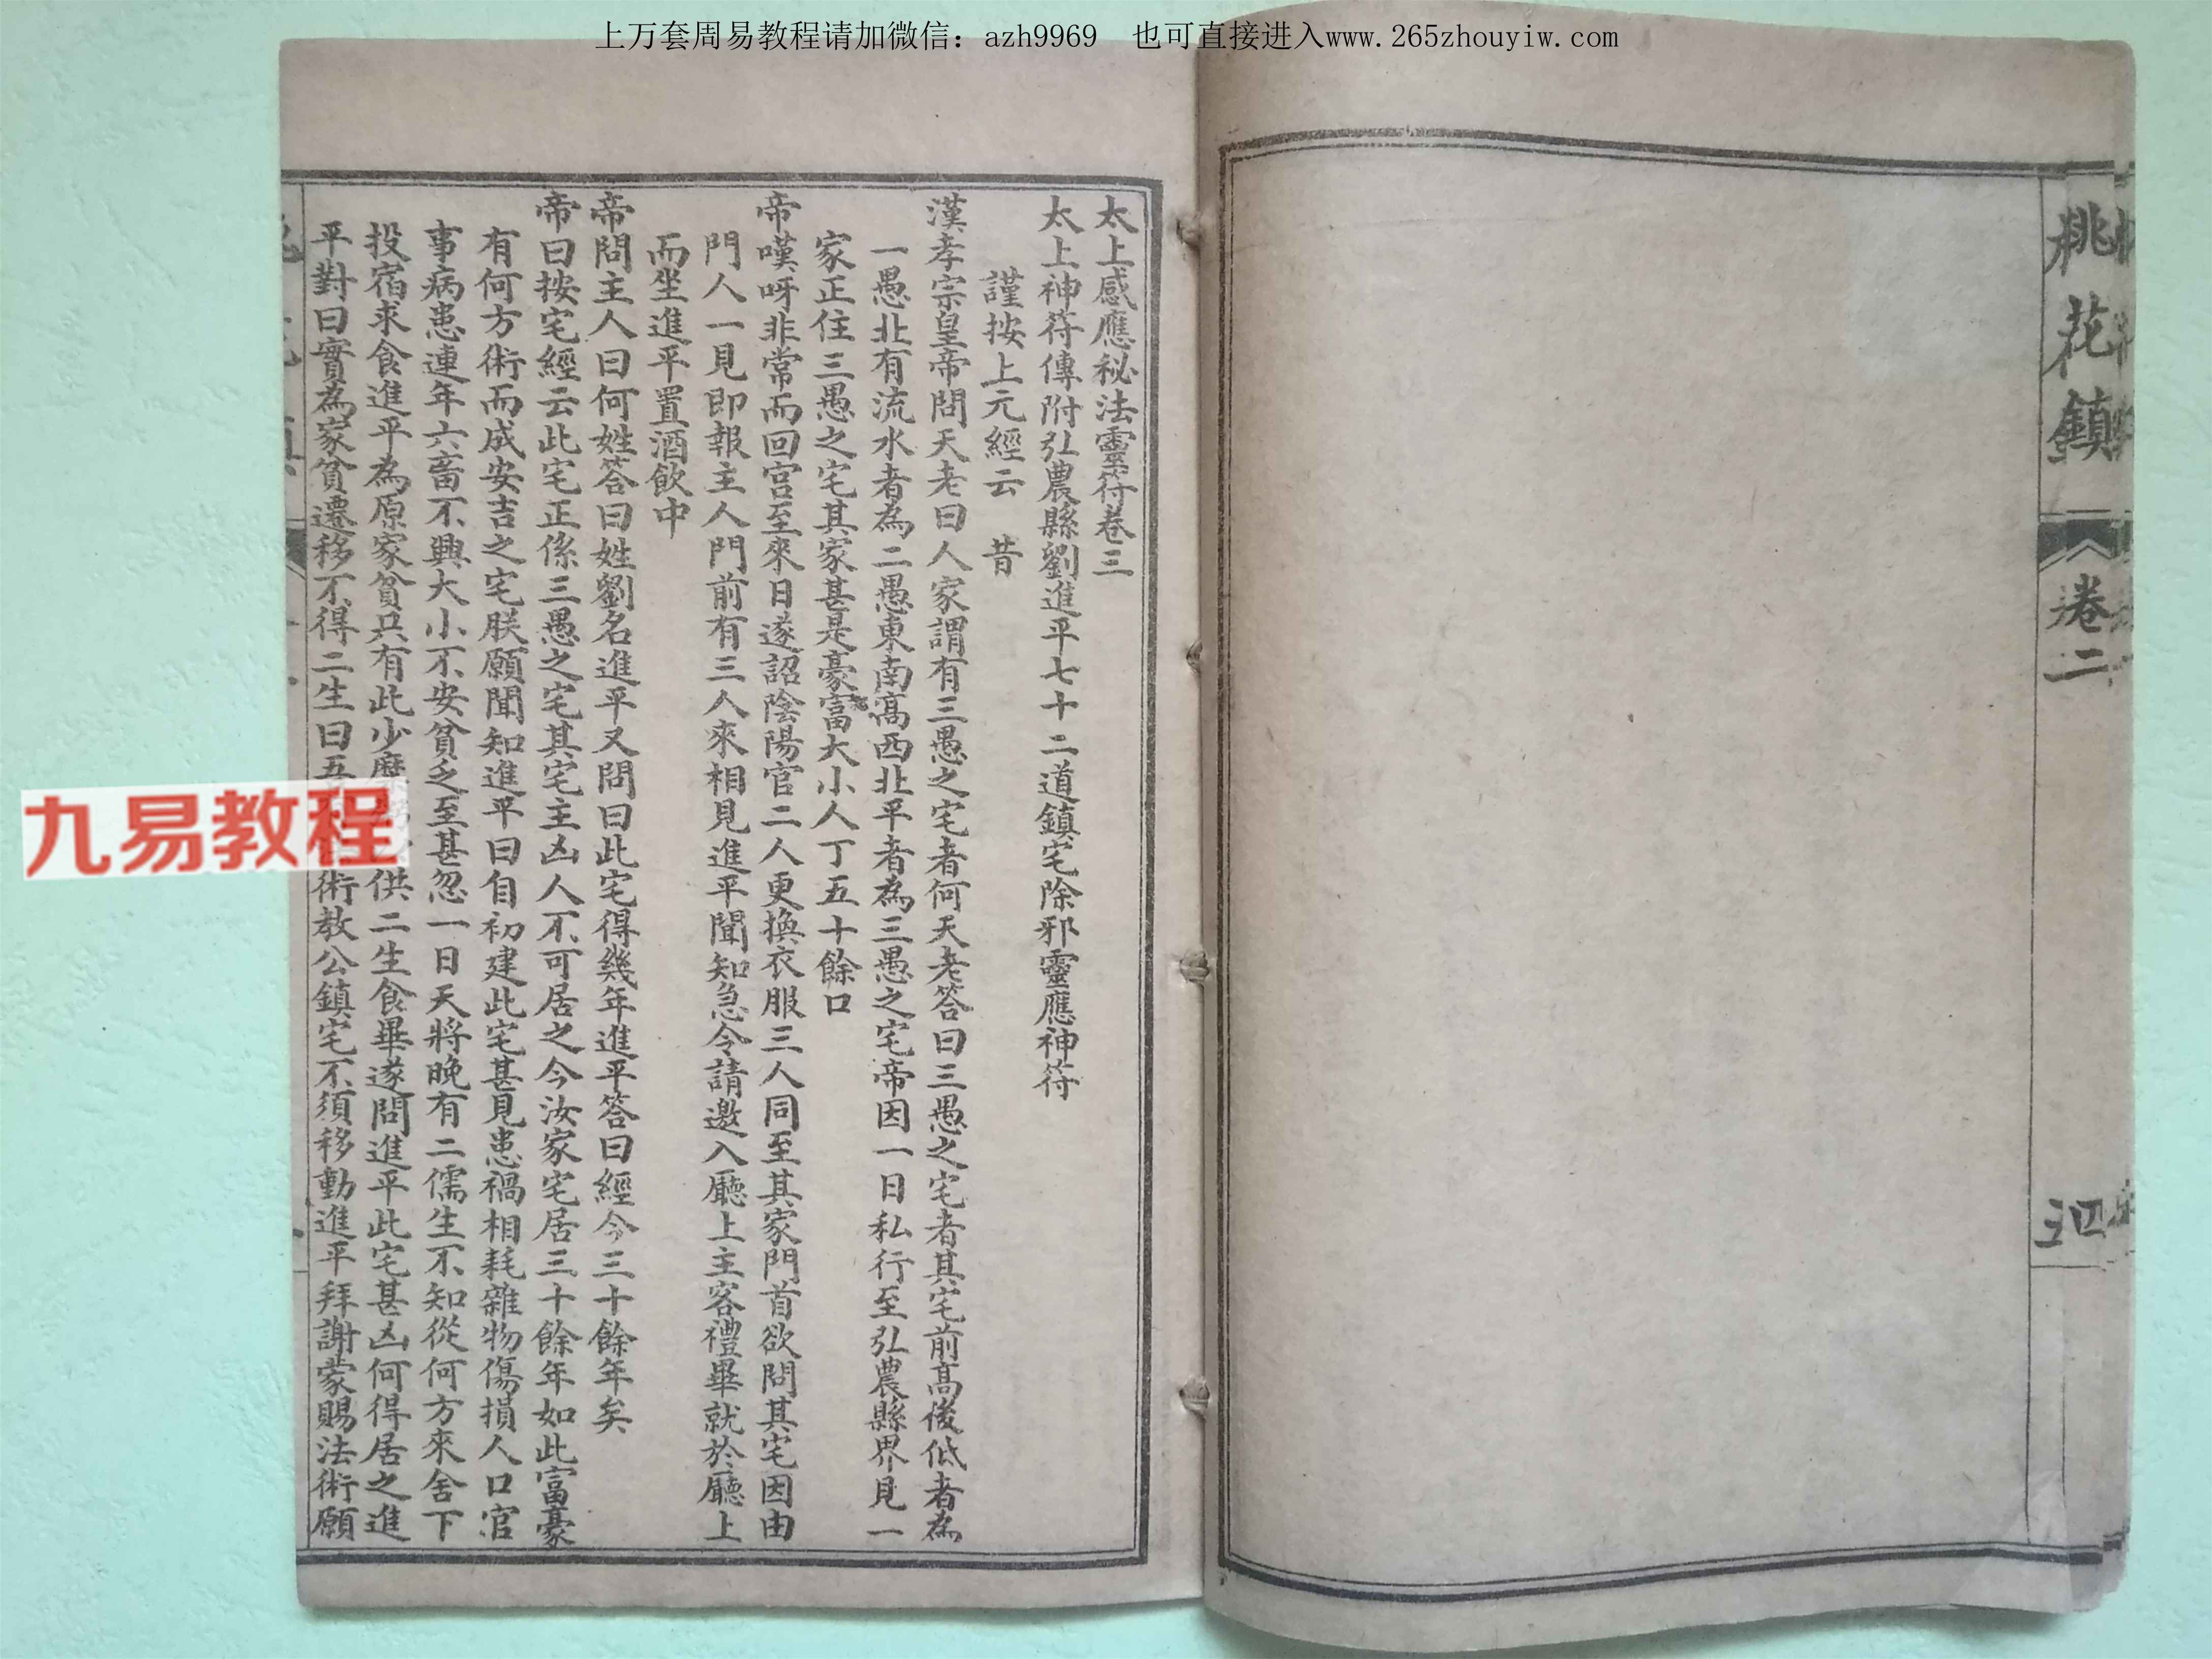 上万套周易教程请加微信：azh9969　也可直接进入www.265zhouyiw.com
桃花鎮
卷二
太上感應秘法靈符卷三
太上神符傳附弘農縣劉進平七十二道鎮宅除邪靈應神符
謹按上元經云　昔
漢孝宗皇帝問天老曰人家謂有三愚之宅者何天老答曰三愚之宅者其宅前高後低者為
一愚北有流水者為二愚東南高西北平者為三愚之宅帝因一日私行至弘農縣界見一
家正住三愚之宅其家甚是豪富大小人丁五十餘口
帝嘆呀非常而回宮至來日遂詔陰陽官二人更換衣服三人同至其家門首欲問其宅因由
門人一見即報主人門前有三人來相見進平聞知急令請邀入廳上主客禮畢就於廳上
而坐進平置酒飲中
帝問主人曰何姓答曰姓劉名進平又問曰此宅得幾年進平答曰經今三十餘年矣
帝曰按宅經云此宅正係三愚之宅其宅主凶人不可居之今汝家宅居三十餘年如此富豪
有何方術而成安吉之宅朕願聞知進平曰自初建此宅甚見患禍相耗雜物傷損人口官
事病患連年六畜不興大小不安貧乏至甚忽一日天將晚有二儒生不知從何方來舍下
投宿求食進平為原家貧只有此少糜供二生食畢遂問進平此宅甚凶何得居之進
平對曰實為家貧遷移不得二生曰吾術教公鎮宅不須移動進平拜謝蒙賜法術願
九易教程